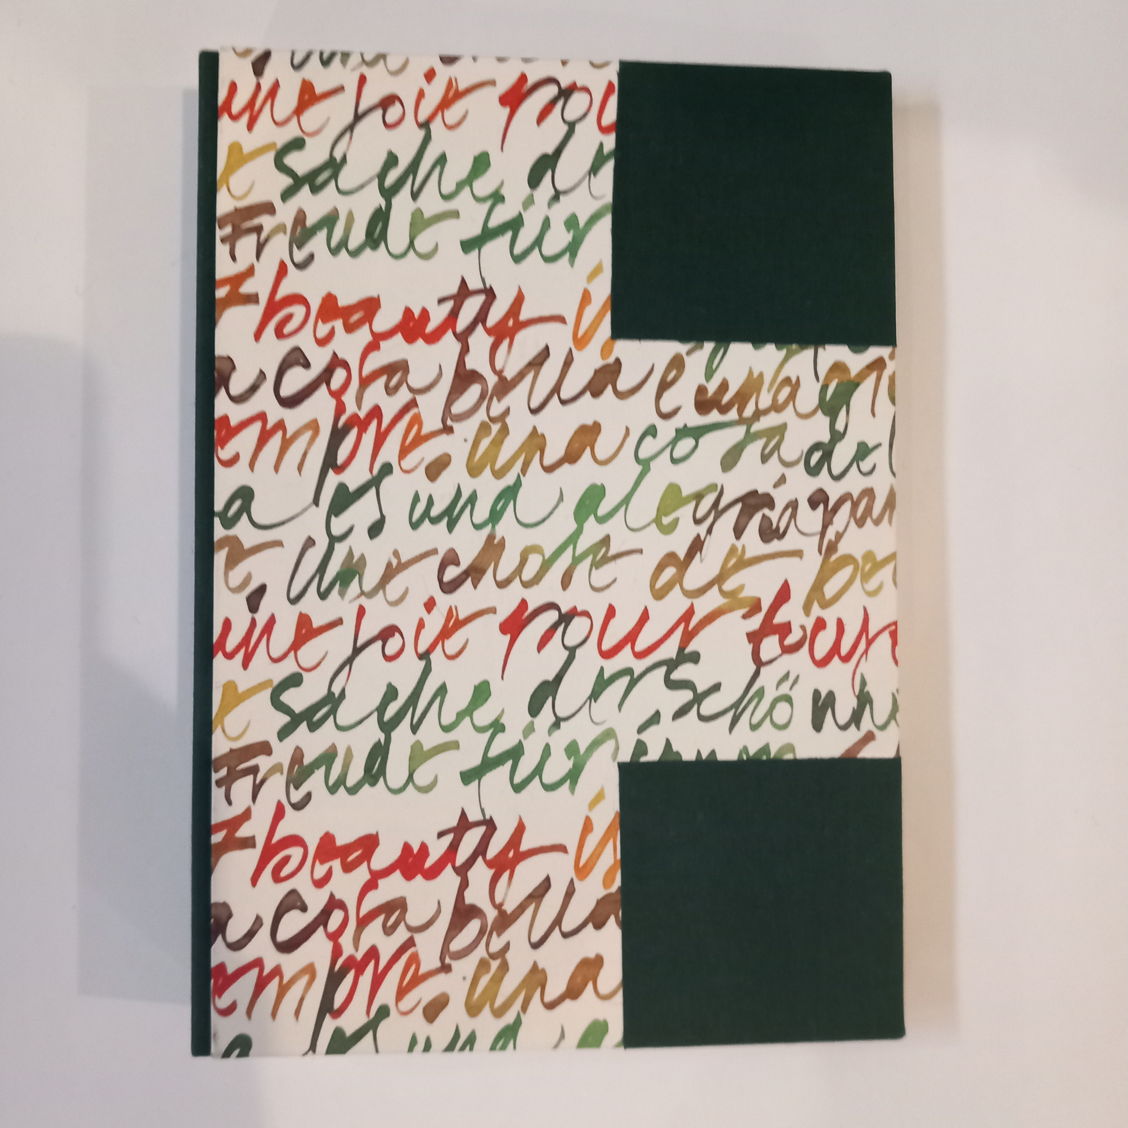 une joie pour
sache de
Freude für
beauty is
a cosa bella é una gio
empre. una cosa del
a es und alegria par
Une chose de be
une joie pour tours
sache der Schönhe
Freude für
beauty is
a cosa bella
empre. una
a es und a